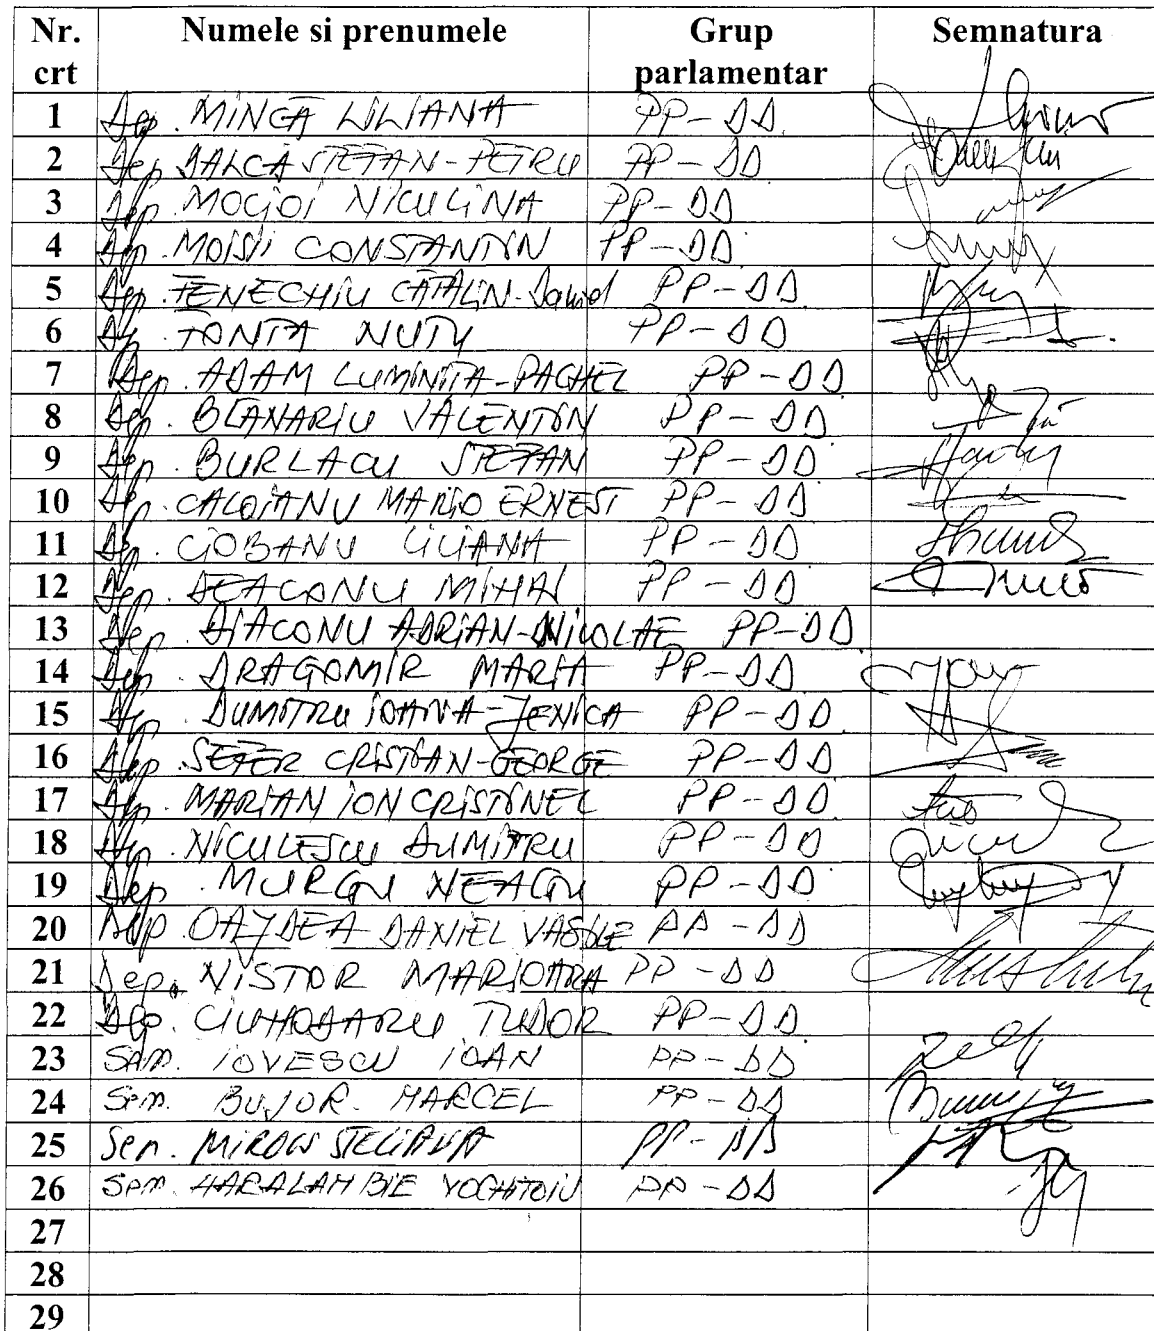 Nr. crt Numele si prenumele Grup parlamentar Semnatura
1 Dep. MINCĂ LILIANA PP-DD
2 Dep. BALCA STEFAN-PETRU PP-DD
3 Dep. MOCIOI NICULINA PP-DD
4 Dep. MOISII CONSTANTIN PP-DD
5 Dep. FENECHIU CĂTĂLIN-Daniel PP-DD
6 Dep. FONTA NUTU PP-DD
7 Dep. ADAM LUMINITA-RACHEL PP-DD
8 Dep. BLANARIU VALENTIN PP-DD
9 Dep. BURLACU STEFAN PP-DD
10 Dep. CALOIANU MARIO ERNEST PP-DD
11 Dep. CIOBANU LILIANA PP-DD
12 Dep. DEACONU MIHAI PP-DD
13 Dep. DIACONU ADRIAN-NICOLAE PP-DD
14 Dep. DRAGOMIR MARIA PP-DD
15 Dep. DUMITRU IOANA-JENICA PP-DD
16 Dep. SEFER CRISTIAN-GEORGE PP-DD
17 Dep. MARIAN ION CRISTINEL PP-DD
18 Dep. NICULESCU DUMITRU PP-DD
19 Dep. MURGU NEAGU PP-DD
20 Dep. OAJDEA DANIEL VASILE PP-DD
21 Dep. NISTOR MARIOARA PP-DD
22 Dep. CIUHODARU TUDOR PP-DD
23 Sen. IOVESCU IOAN PP-DD
24 Sen. BUJOR MARCEL PP-DD
25 Sen. MIRON STELIANA PP-DD
26 Sen. HARALAMBIE VOCHITOIU PP-DD
27
28
29